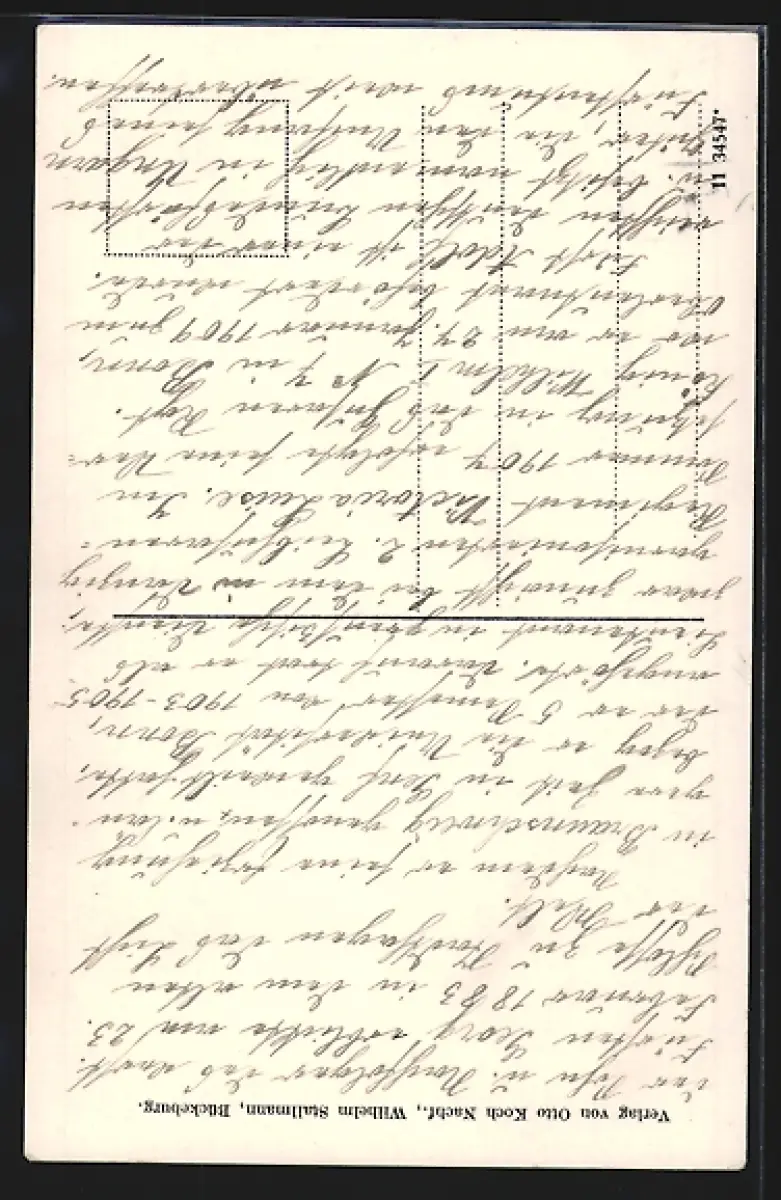 Verlag von Otto Koch Nachf., Wilhelm Stallmann, Bückeburg.
Der Sohn u. Nachfolger des verst.
Fürsten Georg erblickte am 23.
Februar 1883 in dem alten
Schlosse zu Stadthagen das Licht
der Welt.
Nachdem er seine Erziehung
in Braunschweig genossen, u. län-
gere Zeit in Genf geweilt hatte,
bezog er die Universität Bonn,
der er 5 Semester von 1903-1905
angehörte. Darauf trat er als
Lieutenant in preußische Dienste,
zwar zunächst bei dem in Danzig
garnisonierten 2. Leibhusaren-
Regiment Victoria Luise. Im
Januar 1907 erfolgte seine Ver-
setzung in das Husaren Regt.
König Wilhelm I No 7 in Bonn,
wo er am 27. Januar 1909 zum
Oberleutnant befördert wurde.
Fürst Adolf ist einer der
reichsten deutschen Bundesfürsten
u. besitzt namentlich in Ungarn
Güter, die den Umfang seines
Fürstentums weit übertreffen.
11 34547*